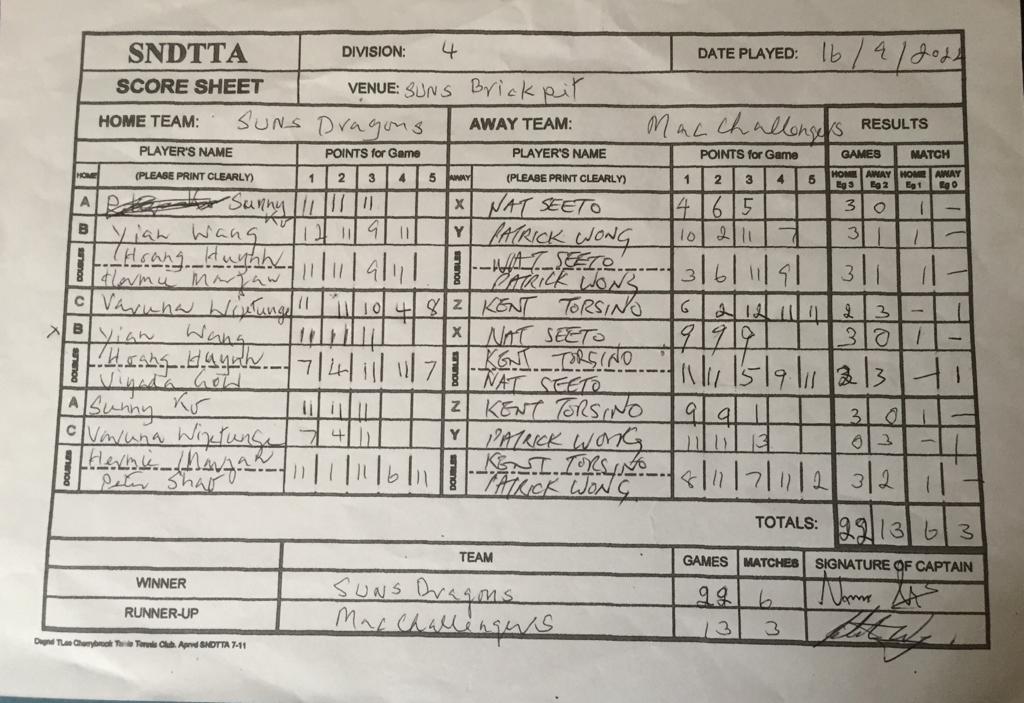 SNDTTA DIVISION: 4 DATE PLAYED: 16/9/2022
SCORE SHEET VENUE: SUNS Brickpit
HOME TEAM: SUNS Dragons AWAY TEAM: Mac Challengers RESULTS
PLAYER'S NAME POINTS for Game PLAYER'S NAME POINTS for Game GAMES MATCH
HOME (PLEASE PRINT CLEARLY) 1 2 3 4 5 AWAY (PLEASE PRINT CLEARLY) 1 2 3 4 5 HOME Eg 3 AWAY Eg 2 HOME Eg 1 AWAY Eg 0
A Sunny Ko 11 11 11 X NAT SEETO 4 6 5 3 0 1 -
B Yian Wang 12 11 9 11 Y PATRICK WONG 10 2 11 7 3 1 1 -
DOUBLES Hoang Huynh 11 11 9 11 DOUBLES NAT SEETO 3 6 11 9 3 1 1 -
Hermie Marzan PATRICK WONG
C Varuna Wijetunge 11 11 10 4 8 Z KENT TORSINO 6 2 12 11 11 2 3 - 1
x B Yian Wang 11 11 11 X NAT SEETO 9 9 9 3 0 1 -
DOUBLES Hoang Huynh 7 4 11 11 7 DOUBLES KENT TORSINO 11 11 5 9 11 2 3 - 1
Viyada Goh NAT SEETO
A Sunny Ko 11 11 11 Z KENT TORSINO 9 9 1 3 0 1 -
C Varuna Wijetunge 7 4 11 Y PATRICK WONG 11 11 13 0 3 - 1
DOUBLES Hermie Marzan 11 1 11 6 11 DOUBLES KENT TORSINO 8 11 7 11 2 3 2 1 -
Peter Shao PATRICK WONG
TOTALS: 22 13 6 3
TEAM GAMES MATCHES SIGNATURE OF CAPTAIN
WINNER SUNS Dragons 22 6
RUNNER-UP Mac Challengers 13 3
Dsgnd TLee Cherrybrook Table Tennis Club. Aprvd SNDTTA 7-11